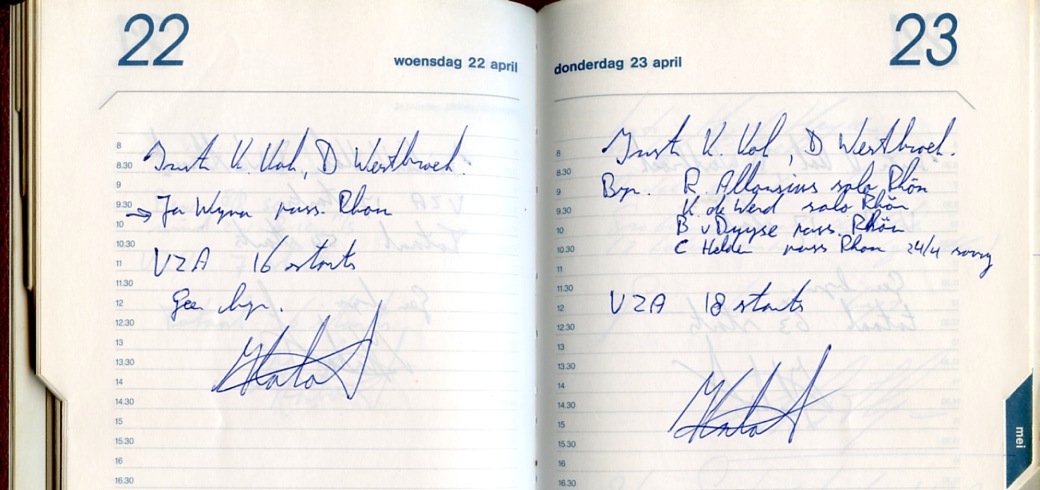 22
woensdag 22 april
8
Instr K. Kok, D Westbroek.
8.30
9
9.30
→ Jan Wijna pass. Rhön
10
10.30
11
VZA 16 starts
11.30
12
Geen bijz.
12.30
13
13.30
14
14.30
15
15.30
16
16.30
23
donderdag 23 april
8
Instr K. Kok, D Westbroek.
8.30
9
Bijz. R. Allousius solo Rhön
9.30
K. de Werd solo Rhön
10
B v Duyse pass. Rhön
10.30
C Helden pass Rhon 24/4 sorry
11
11.30
12
VZA 18 starts
12.30
13
13.30
14
14.30
15
15.30
16
16.30
mei